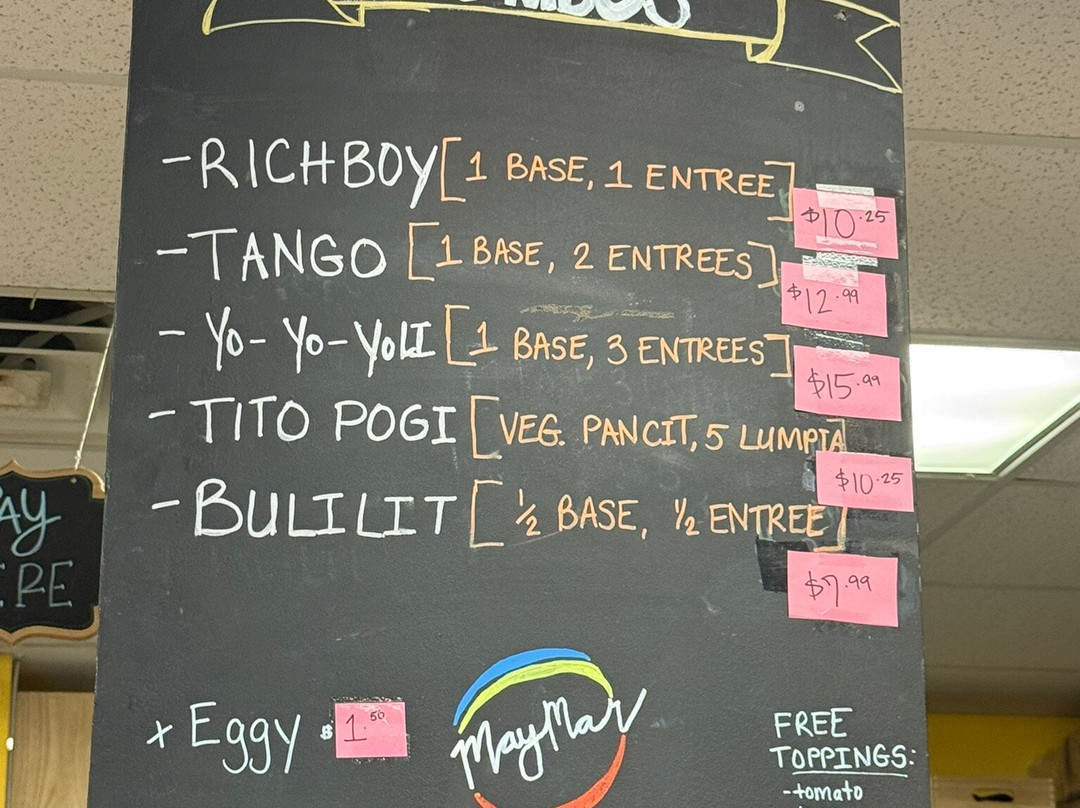 - RICHBOY [1 BASE, 1 ENTREE] $10.25
- TANGO [1 BASE, 2 ENTREES] $12.99
- Yo-Yo-YOLI [1 BASE, 3 ENTREES] $15.99
- TITO POGI [VEG. PANCIT, 5 LUMPIA] $10.25
- BULILIT [½ BASE, ½ ENTREE] $7.99
+ Eggy $1.50
MayMar
FREE
TOPPINGS:
- tomato
RE